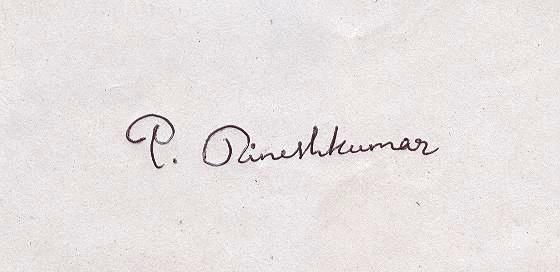 P. Rineshkumar